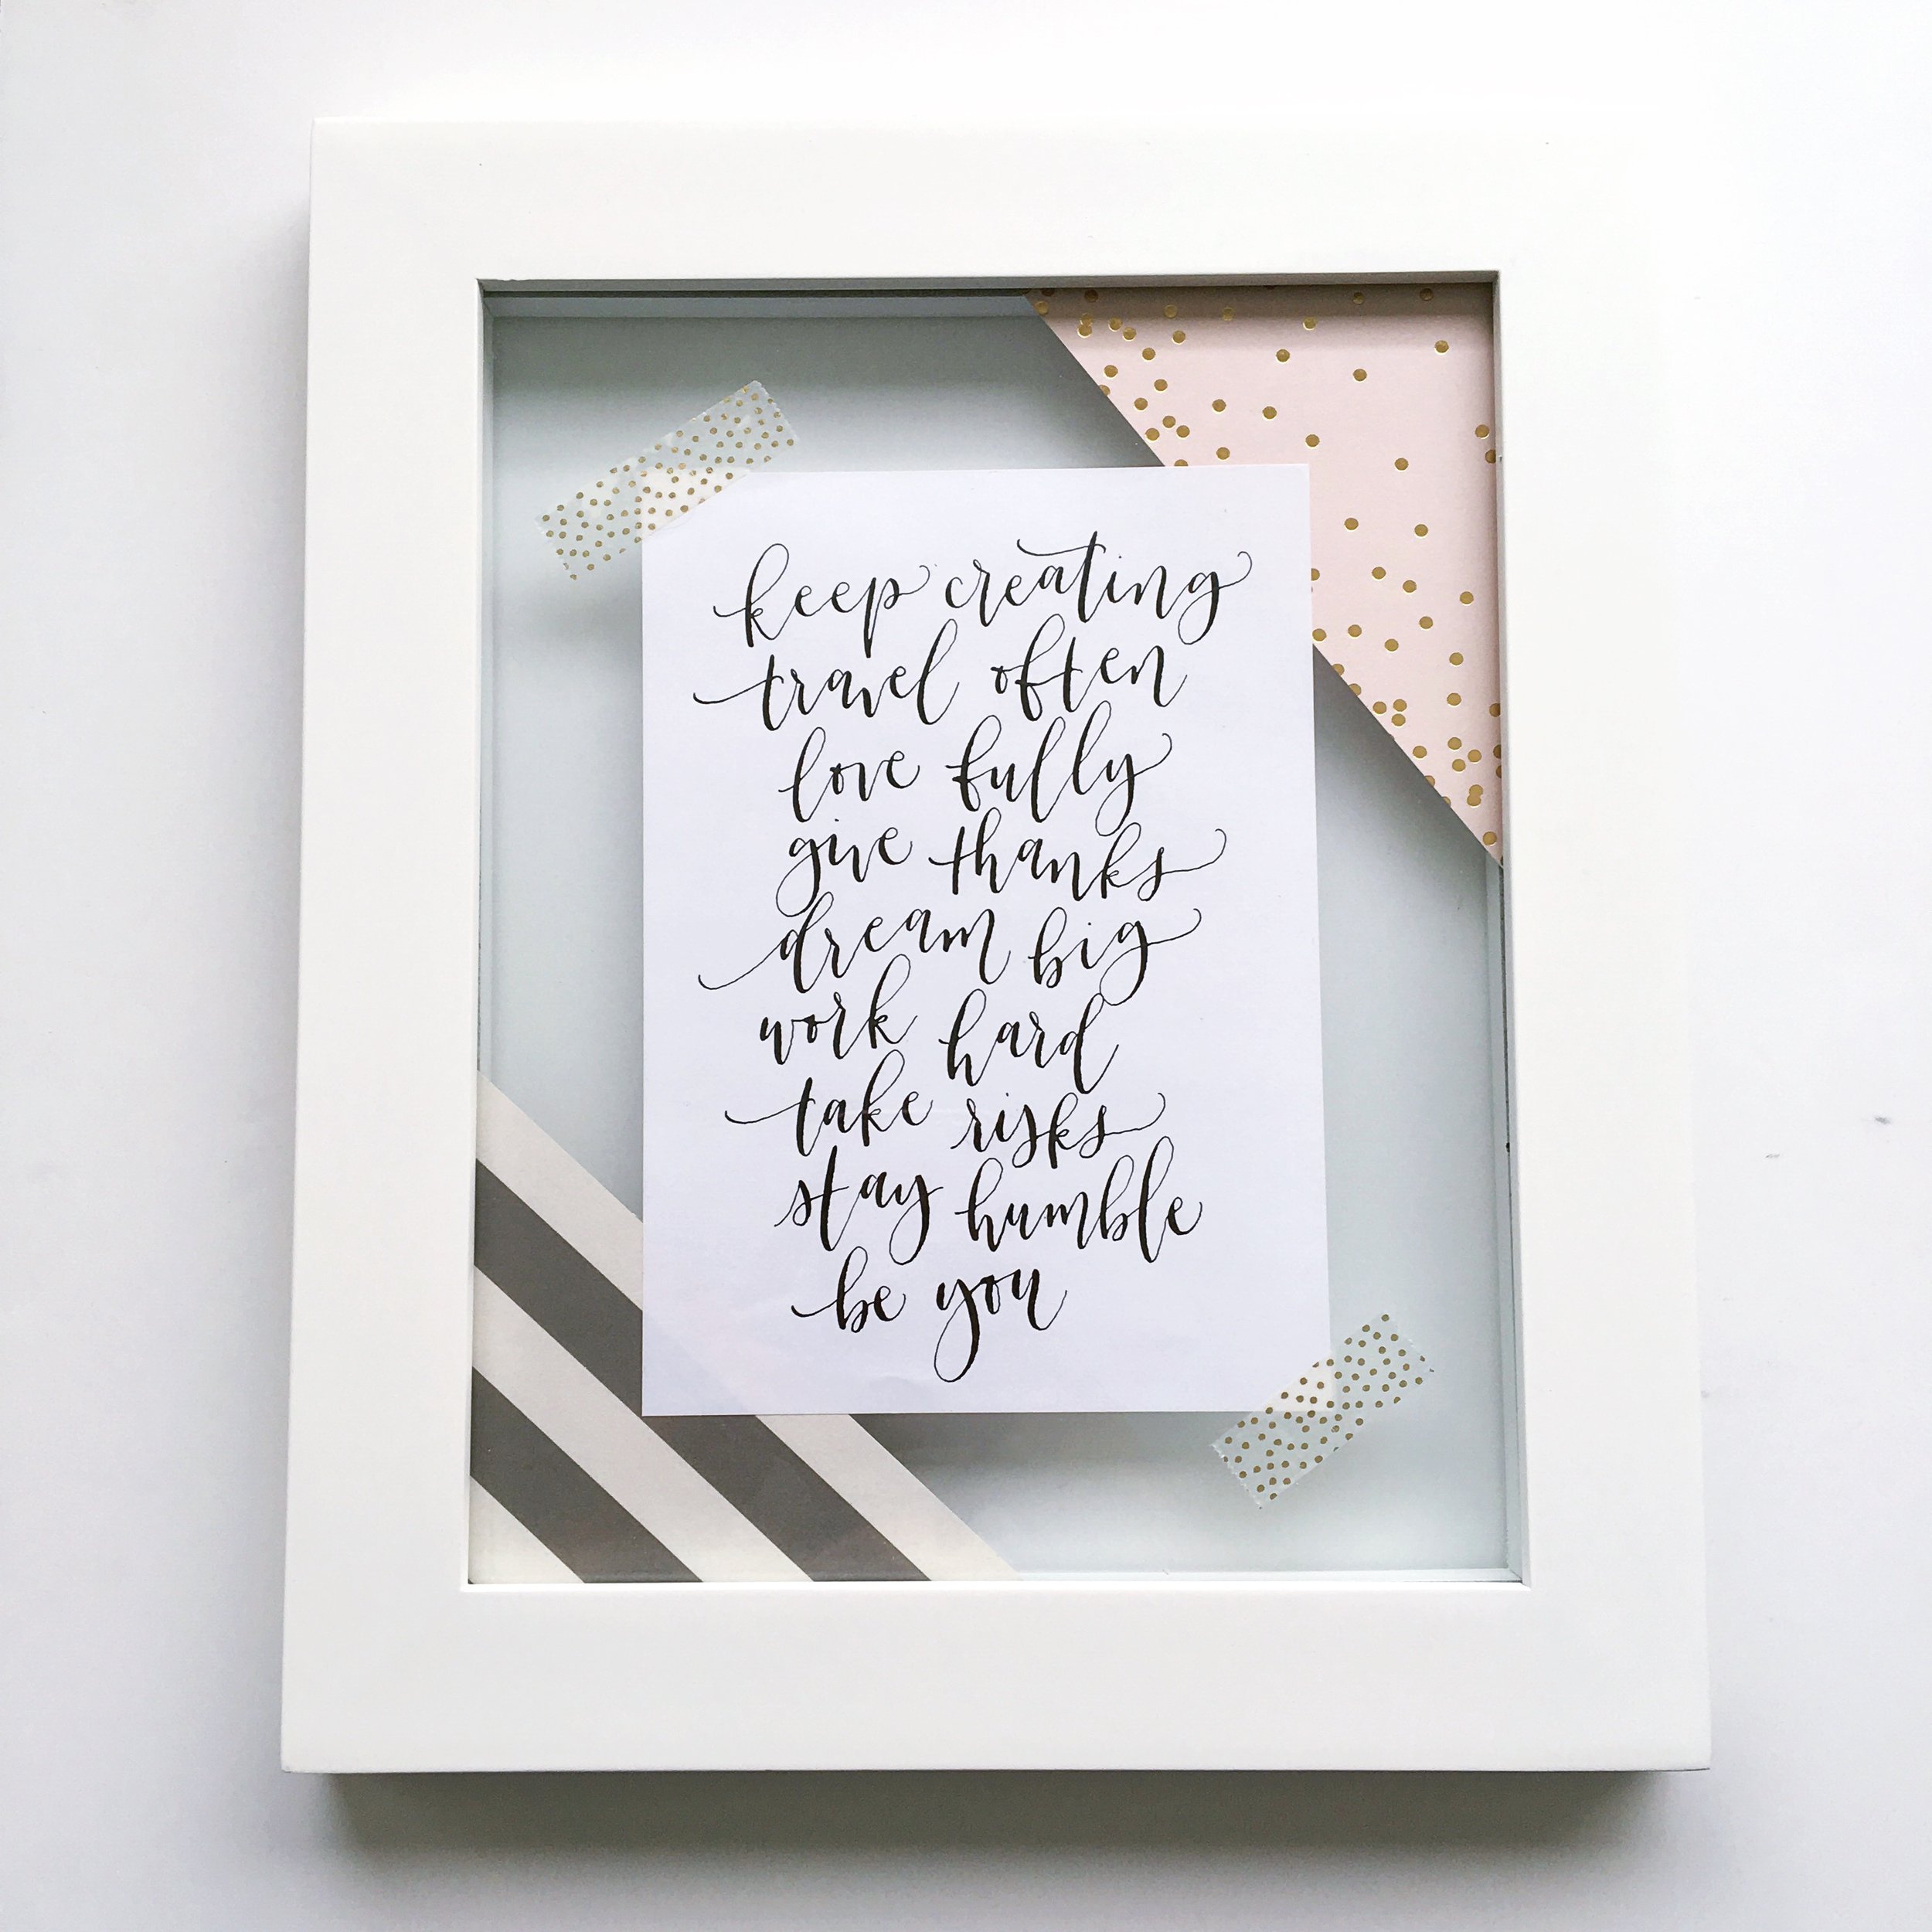 keep creating
travel often
love fully
give thanks
dream big
work hard
take risks
stay humble
be you